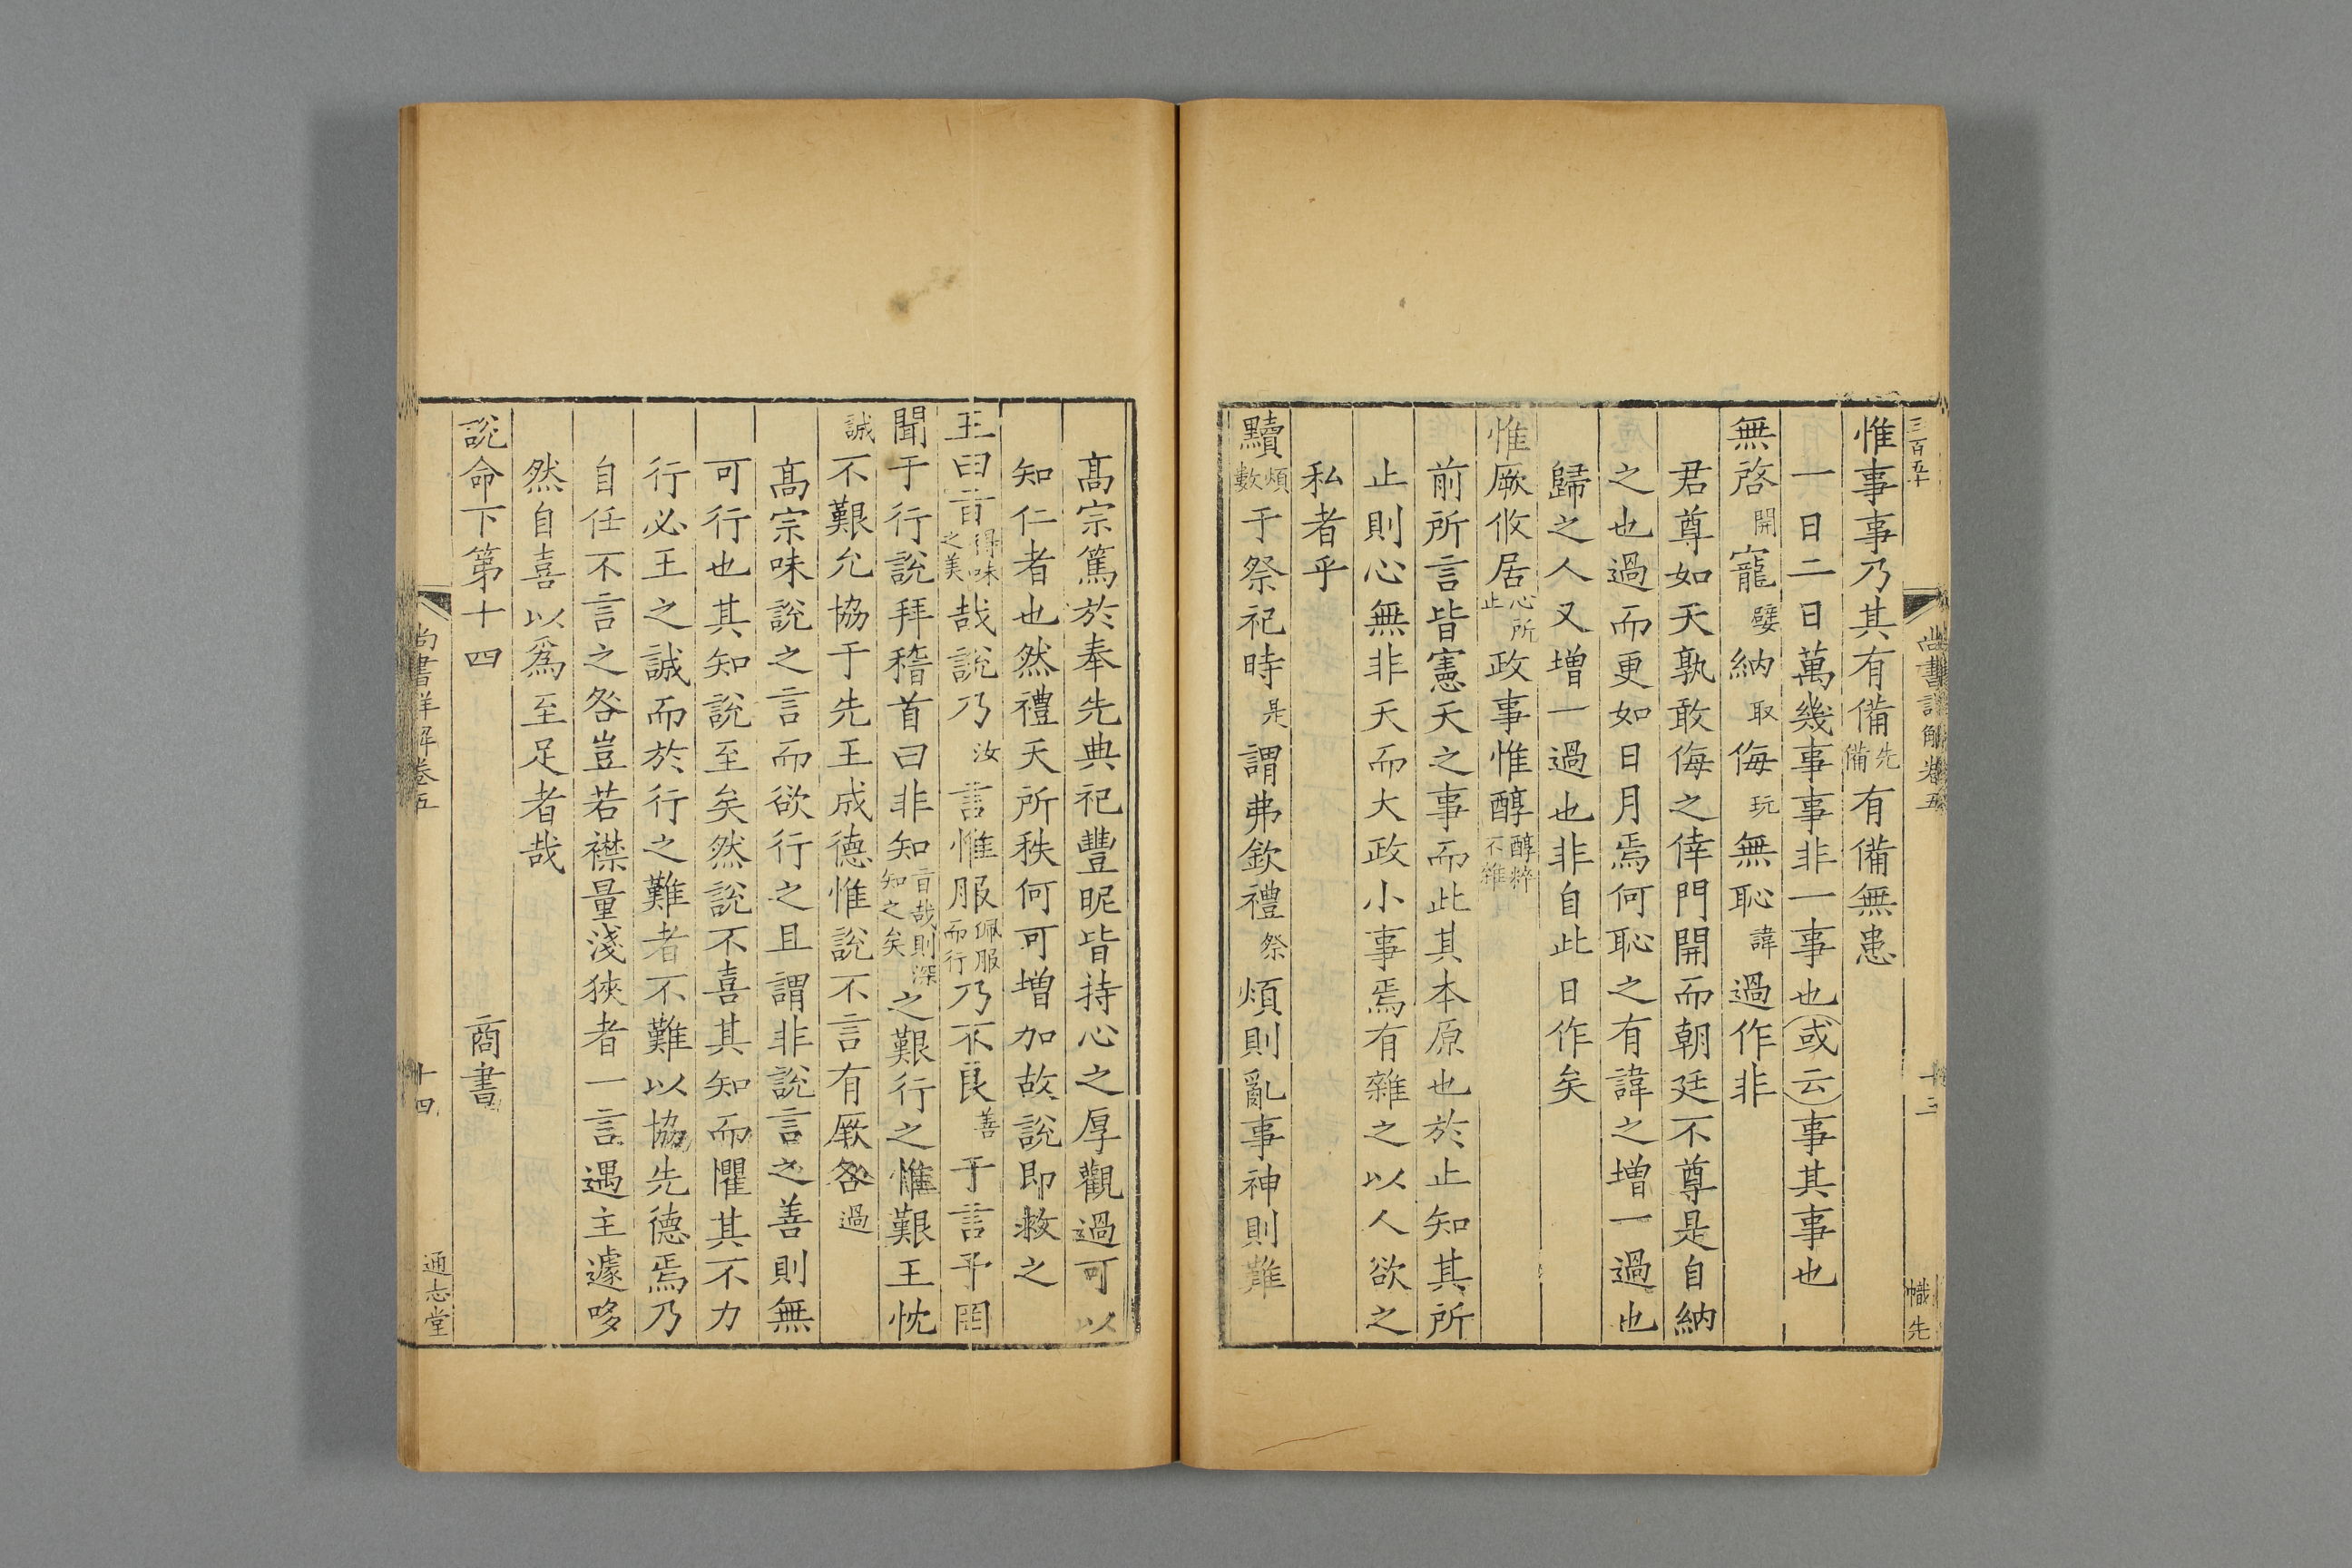 三百五十
尚書詳解卷五
十三
幟先
惟事事乃其有備先備有備無患
一日二日萬幾事事非一事也或云事其事也
無啓開寵嬖納取侮玩無恥諱過作非
君尊如天孰敢侮之倖門開而朝廷不尊是自納
之也過而更如日月焉何恥之有諱之增一過也
歸之人又增一過也非自此日作矣
惟厥攸居心所止政事惟醇醇粹不雜
前所言皆憲天之事而此其本原也於止知其所
止則心無非天而大政小事焉有雜之以人欲之
私者乎
黷煩數于祭祀時是謂弗欽禮祭煩則亂事神則難
高宗篤於奉先典祀豐昵皆持心之厚觀過可以
知仁者也然禮天所秩何可增加故說即救之
王曰旨得味之美哉說乃汝言惟服佩服而行乃不良善于言予罔
聞于行說拜稽首曰非知旨哉則深知之矣之艱行之惟艱王忱
誠不艱允協于先王成德惟說不言有厥咎過
高宗味說之言而欲行之且謂非說言之善則無
可行也其知說至矣然說不喜其知而懼其不力
行必王之誠而於行之難者不難以協先德焉乃
自任不言之咎豈若襟量淺狹者一言遇主遽哆
然自喜以爲至足者哉
說命下第十四 商書
尚書詳解卷五
十四
通志堂